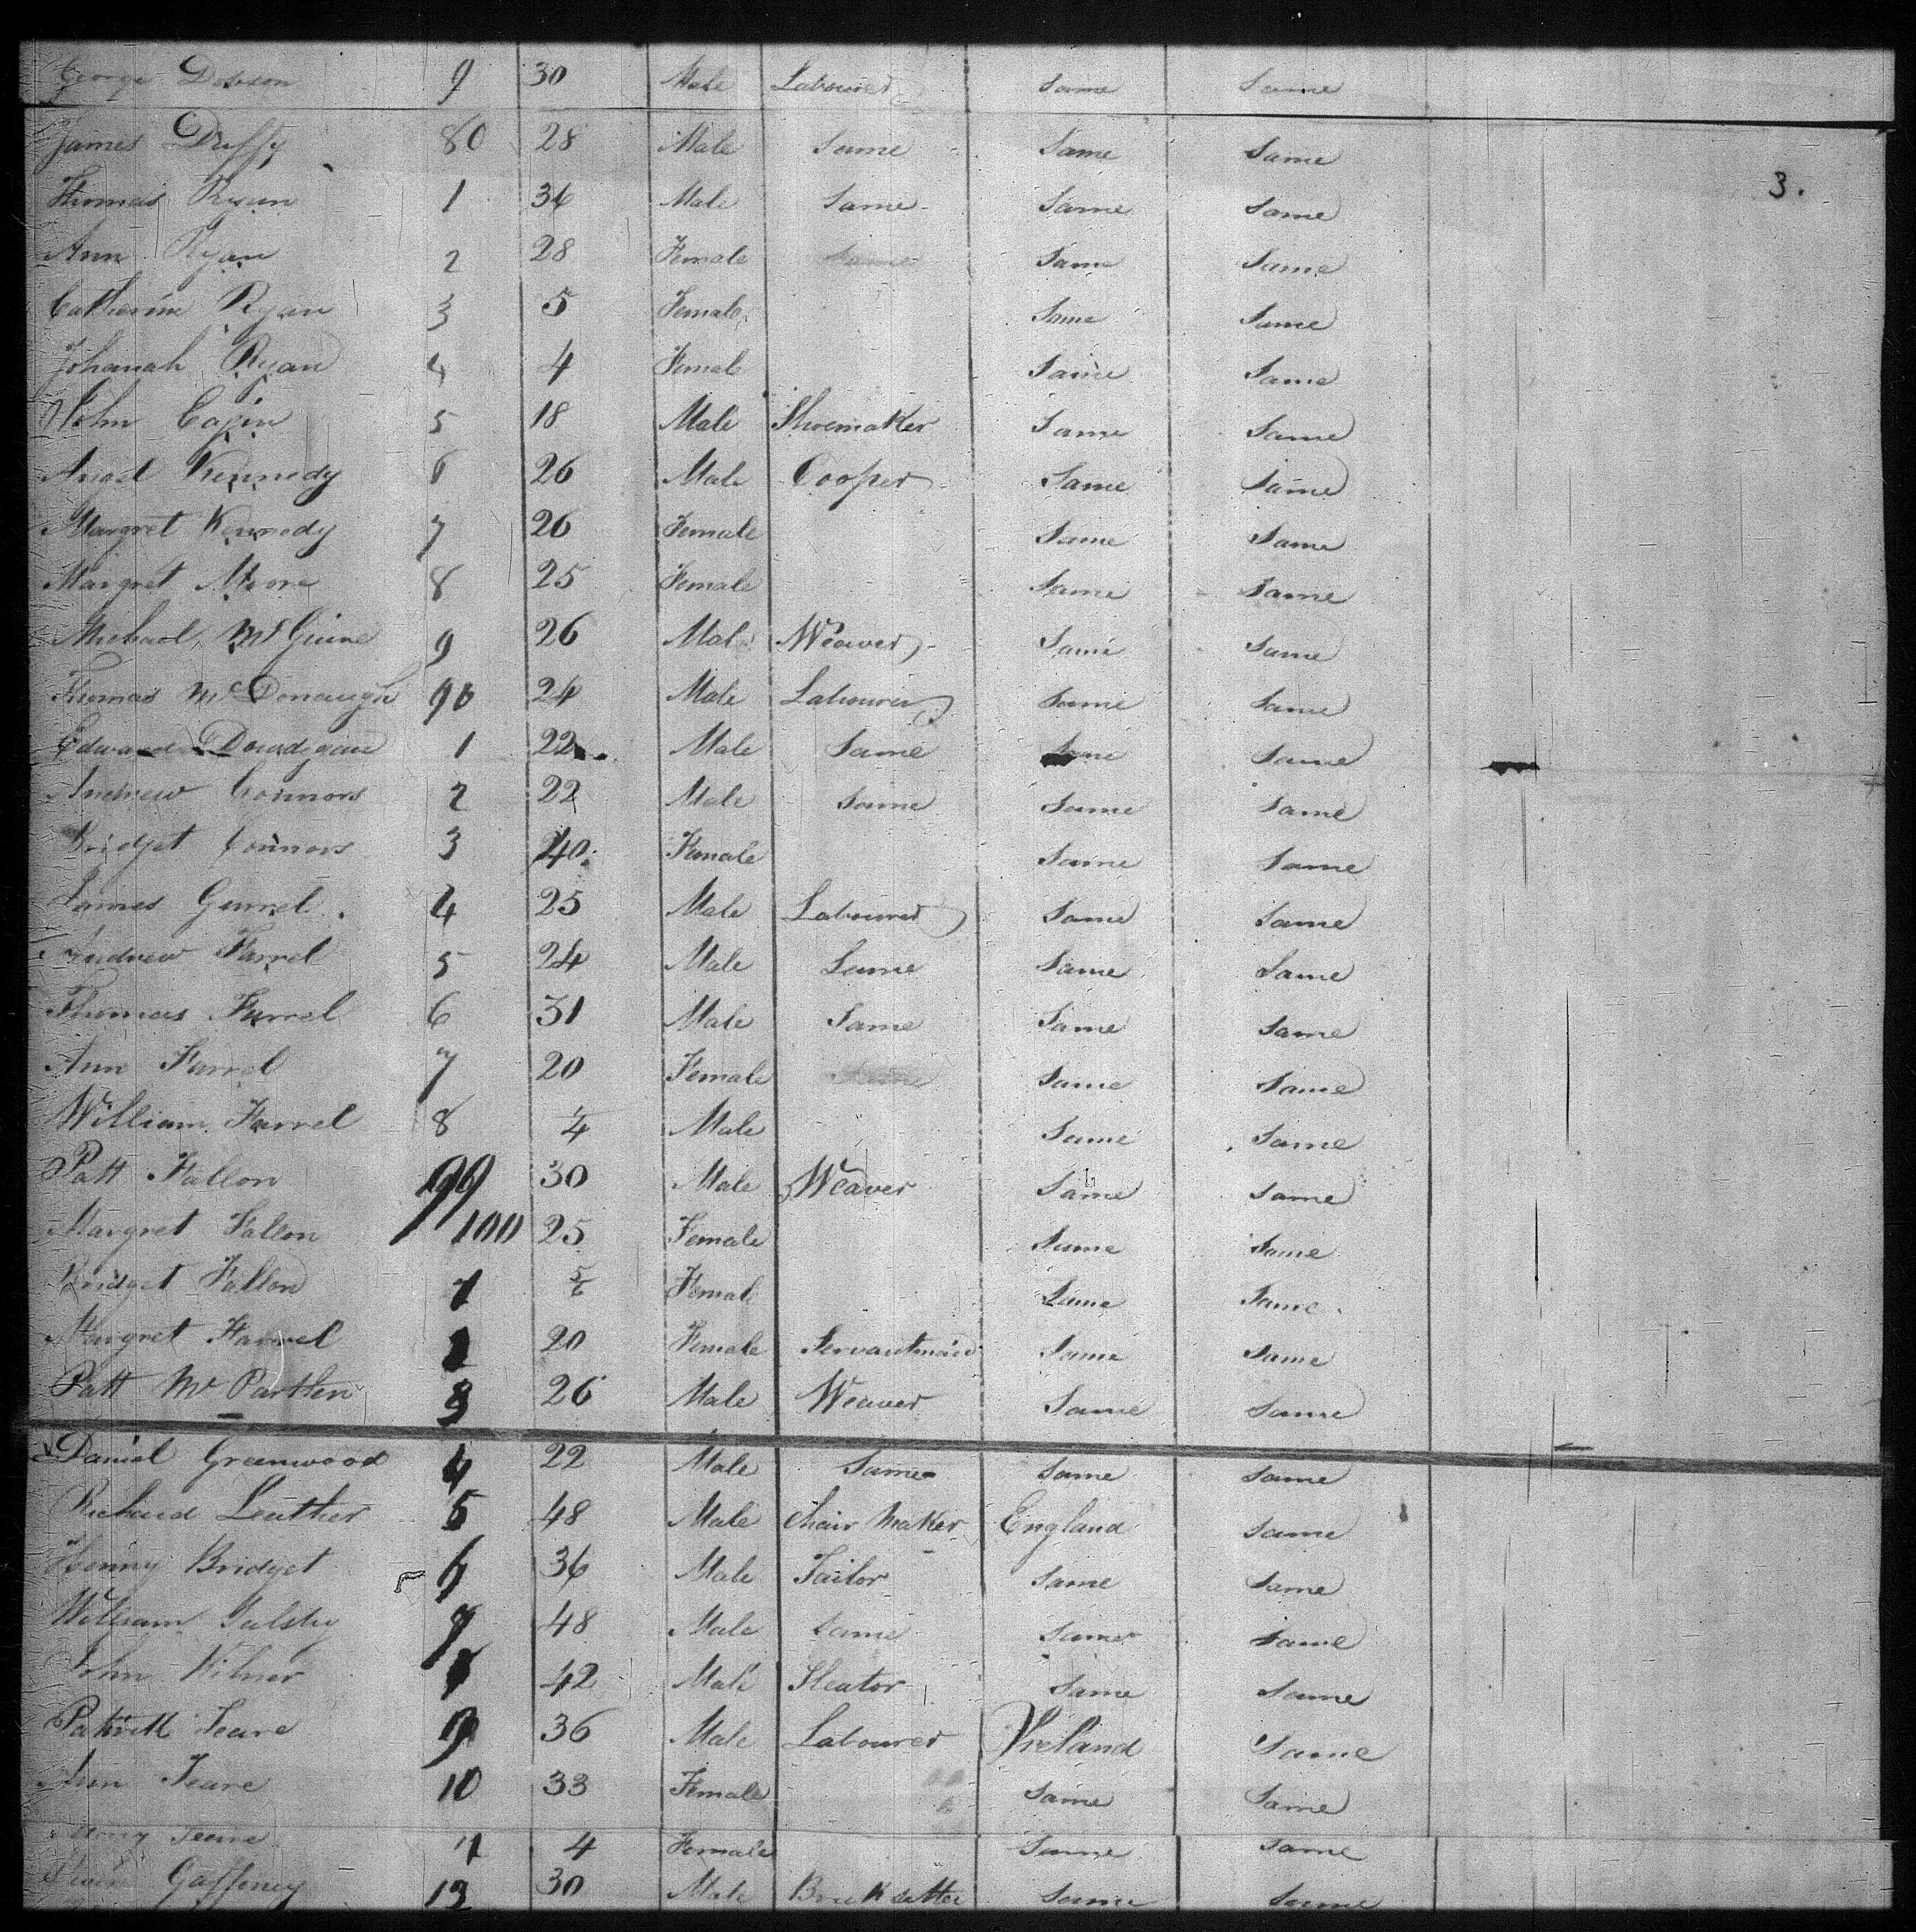 George Dobson 9 30 Male Labourer Same Same
James Duffy 80 28 Male Same Same Same
3.
Thomas Ryan 1 36 Male Same Same Same
Ann Ryan 2 28 Female Same Same Same
Catherine Ryan 3 5 Female Same Same
Johanah Ryan 4 4 Female Same Same
John 5 18 Male Shoemaker Same Same
Kennedy 6 26 Male Cooper Same Same
Margret Kennedy 7 26 Female Same Same
Margret Moore 8 25 Female Same Same
Michael 9 26 Male Weaver Same Same
Thomas McDonaugh 90 24 Male Labourer Same Same
Edward 1 22 Male Same Same Same
Andrew Connors 2 22 Male Same Same Same
Bridget Connors 3 40 Female Same Same
James 4 25 Male Labourer Same Same
Andrew Farrel 5 24 Male Same Same Same
Thomas Farrel 6 31 Male Same Same Same
Ann Farrel 7 20 Female Same Same Same
William Farrel 8 Male Same Same
Patt Fallon 99 30 Male Weaver Same Same
Margret Fallon 100 25 Female Same Same
Bridget Fallon 1 Female Same Same
Margret Farrel 2 20 Female Servantmaid Same Same
Patt McPartlen 3 26 Male Weaver Same Same
Daniel Greenwood 4 22 Male Same Same Same
Richard Leuther 5 48 Male Chair Maker England Same
Henny Bridget 6 36 Male Tailor Same Same
William 7 48 Male Same Same Same
John 42 Male Sleator Same Same
Patrick Teare 9 36 Male Labourer Ireland Same
Ann Teare 10 33 Female Same Same
Mary Teare 11 4 Female Same Same
Gaffeney 12 30 Male Bricksetter Same Same